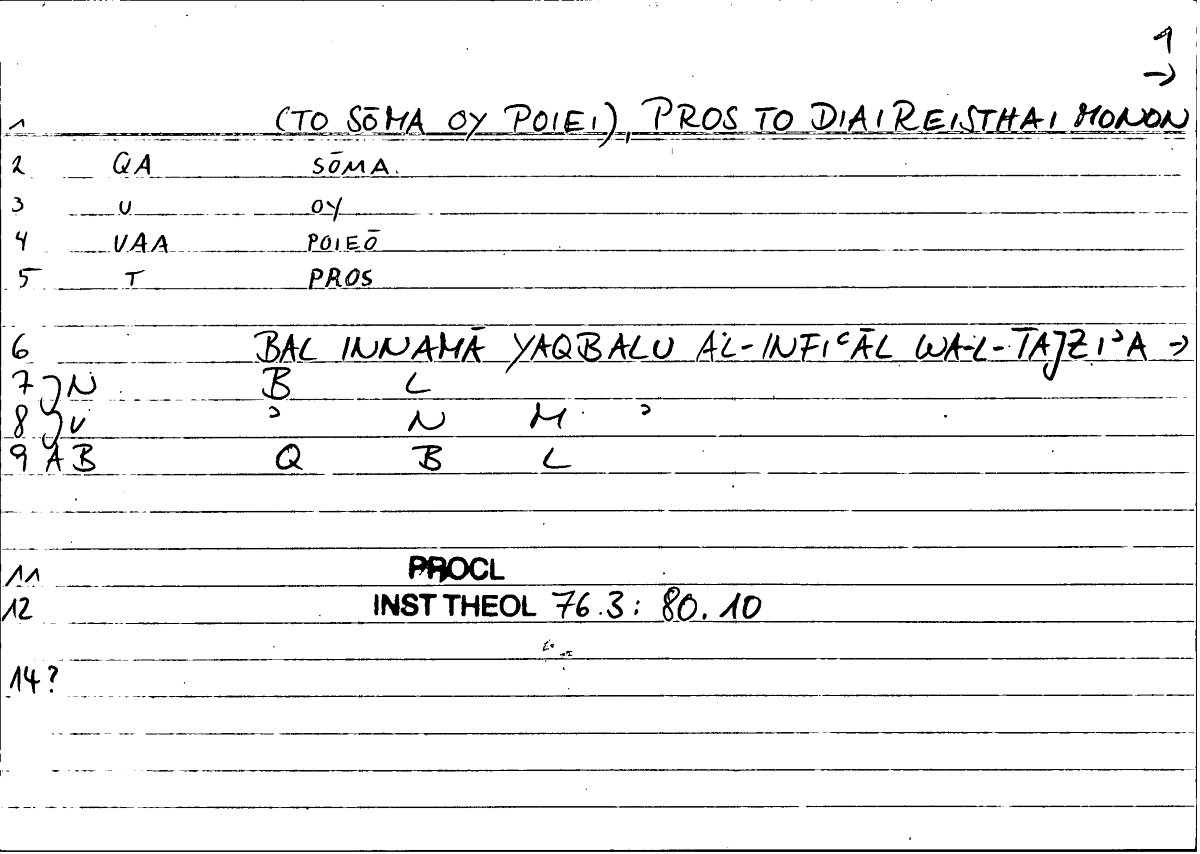 1
→
1 (TO SŌMA OY POIEI), PROS TO DIAIREISTHAI MONON
2 QA SŌMA.
3 U OY
4 VAA POIEŌ
5 T PROS
6 BAL INNAMĀ YAQBALU AL-INFIʿĀL WA-L-TAJZIʾA →
7 JN B L
8 JU ʾ N M ʾ
9 AB Q B L
11 PROCL
12 INST THEOL 76.3: 80.10
14?